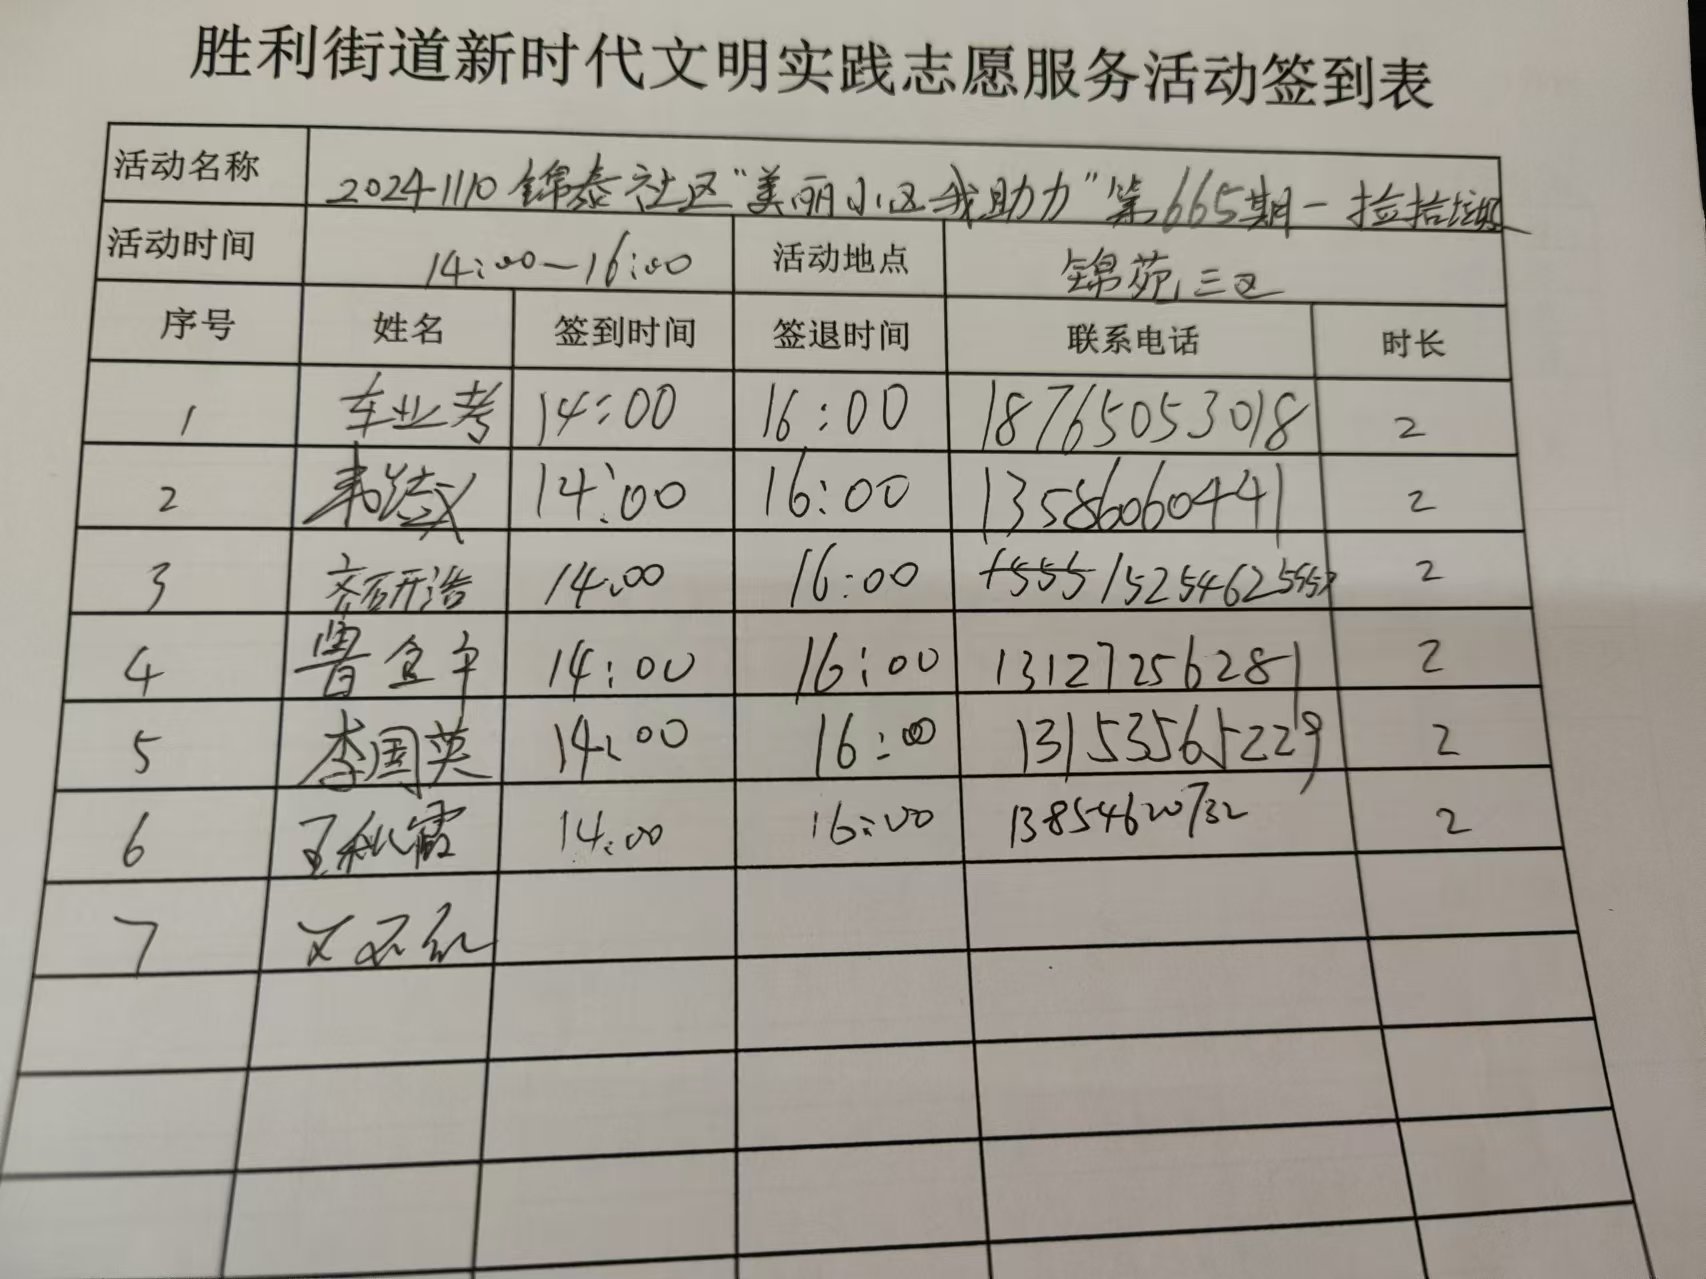 胜利街道新时代文明实践志愿服务活动签到表
活动名称 20241110锦泰社区"美丽小区我助力"第665期-捡拾垃圾
活动时间 14:00-16:00 活动地点 锦苑三区
序号 姓名 签到时间 签退时间 联系电话 时长
1 车业考 14:00 16:00 18765053018 2
2 14:00 16:00 13586060441 2
3 齐研浩 14:00 16:00 2
4 曹宜平 14:00 16:00 13127256281 2
5 李国英 14:00 16:00 13153565229 2
6 王秋霞 14:00 16:00 13854620732 2
7